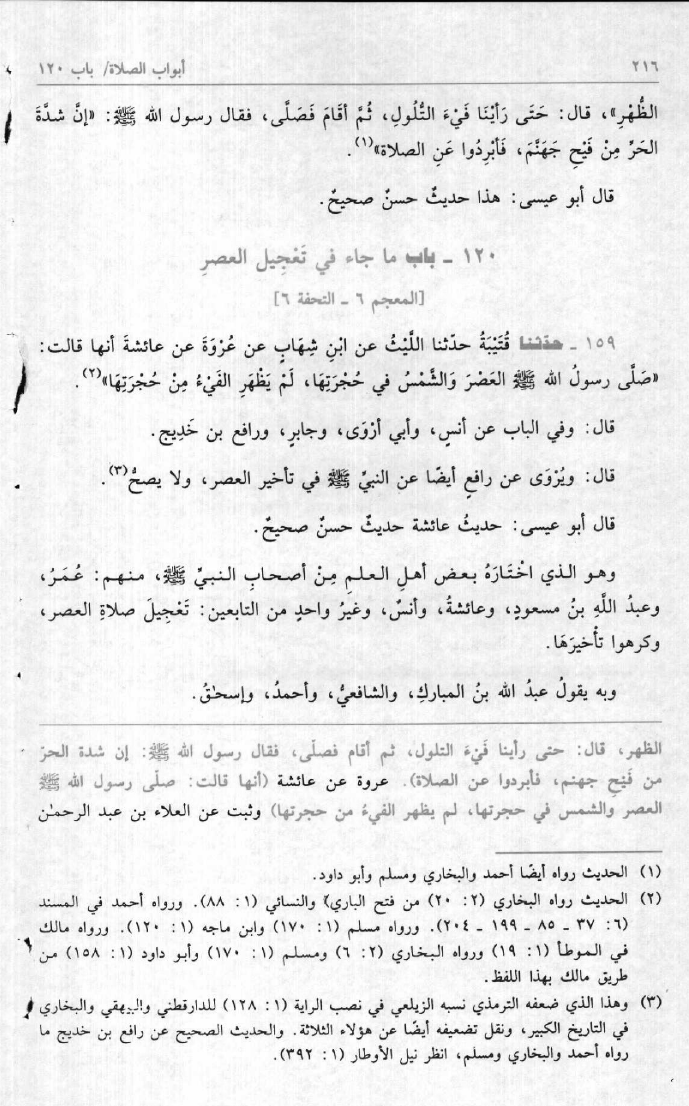 ٢١٦
أبواب الصلاة/ باب ١٢٠
الظُّهْرِ»، قال: حَتَى رَأيْنَا فَيْءَ التُّلُولِ، ثُمَّ أقَامَ فَصَلَّى، فقال رسول الله ﷺ: «إنَّ شدَّةَ
الحَرِّ مِنْ فَيْحِ جَهَنَّمَ، فَأبْرِدُوا عَنِ الصلاة»(١).
قال أبو عيسى: هذا حديثٌ حسنٌ صحيحٌ.
١٢٠ ـ باب ما جاء في تَعْجِيل العصرِ
[المعجم ٦ ـ التحفة ٦]
١٥٩ ـ حدّثنا قُتَيْبَةُ حدّثنا اللَّيْثُ عن ابنِ شِهَابٍ عن عُرْوَةَ عن عائشةَ أنها قالت:
«صَلَّى رسولُ الله ﷺ العَصْرَ وَالشَّمْسُ في حُجْرَتِهَا، لَمْ يَظْهَرِ الفَيْءُ مِنْ حُجْرَتِهَا»(٢).
قال: وفي الباب عن أنسٍ، وأبي أرْوَى، وجابرٍ، ورافع بن خَدِيج.
قال: ويُرْوَى عن رافعٍ أيضًا عن النبيِّ ﷺ في تأخير العصر، ولا يصحُّ(٣).
قال أبو عيسى: حديثُ عائشة حديثٌ حسنٌ صحيحٌ.
وهو الذي اخْتَارَهُ بعض أهلِ العلمِ مِنْ أصحابِ النبيِّ ﷺ، منهم: عُمَرُ،
وعبدُ اللَّهِ بنُ مسعودٍ، وعائشةُ، وأنسٌ، وغيرُ واحدٍ من التابعين: تَعْجِيلَ صلاةِ العصر،
وكرهوا تأْخيرَهَا.
وبه يقولُ عبدُ الله بنُ المباركِ، والشافعيُّ، وأحمدُ، وإسحٰقُ.
الظهر، قال: حتى رأينا فَيْءَ التلول، ثم أقام فصلّى، فقال رسول الله ﷺ: إن شدة الحرّ
من فَيْحِ جهنم، فأبردوا عن الصلاة). عروة عن عائشة (أنها قالت: صلّى رسول الله ﷺ
العصر والشمس في حجرتها، لم يظهر الفيءُ من حجرتها) وثبت عن العلاء بن عبد الرحمٰن
(١) الحديث رواه أيضًا أحمد والبخاري ومسلم وأبو داود.
(٢) الحديث رواه البخاري (٢: ٢٠) من فتح الباري) والنسائي (١: ٨٨). ورواه أحمد في المسند
(٦: ٣٧ ـ ٨٥ ـ ١٩٩ ـ ٢٠٤). ورواه مسلم (١: ١٧٠) وابن ماجه (١: ١٢٠). ورواه مالك
في الموطأ (١: ١٩) ورواه البخاري (٢: ٦) ومسلم (١: ١٧٠) وأبو داود (١: ١٥٨) من
طريق مالك بهذا اللفظ.
(٣) وهذا الذي ضعفه الترمذي نسبه الزيلعي في نصب الراية (١: ١٢٨) للدارقطني والبيهقي والبخاري
في التاريخ الكبير، ونقل تضعيفه أيضًا عن هؤلاء الثلاثة. والحديث الصحيح عن رافع بن خديج ما
رواه أحمد والبخاري ومسلم، انظر نيل الأوطار (١: ٣٩٢).